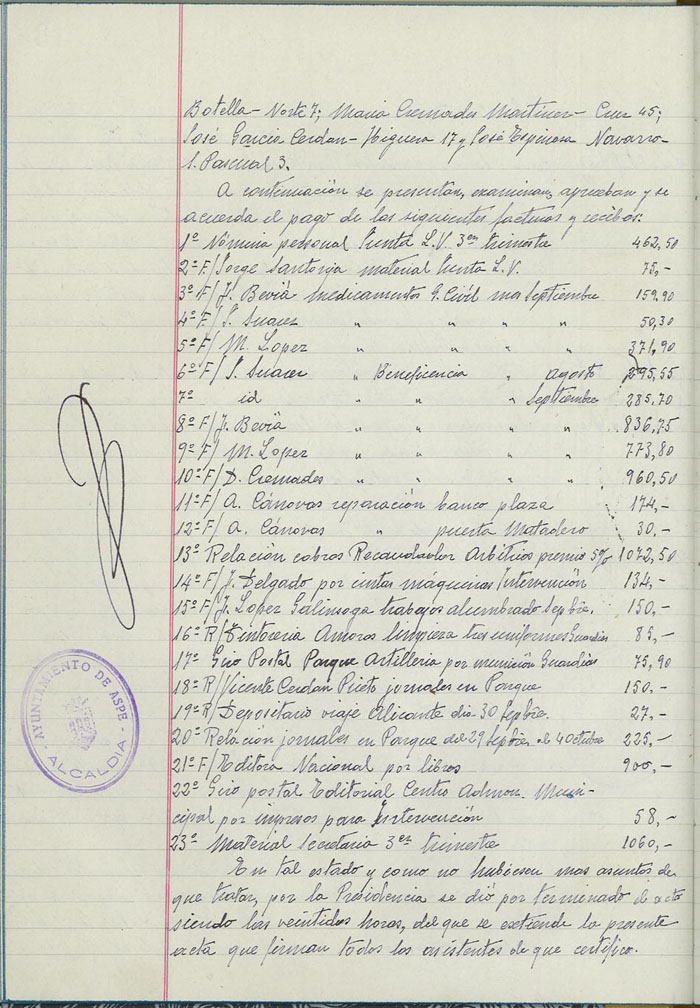 Botella - Norte 7; Maria Cremades Martinez - Cruz 45;
José Garcia Cerdan - Higuera 17 y José Espinosa Navarro -
S. Pascual 3.
A continuación se presentan, examinan, aprueban y se
acuerda el pago de las siguientes facturas y recibos:
1º Nómina personal Prenta L.V. 3er trimestre 462,50
2º F/ Jorge Santonja material Prenta L.V. 75,-
3º F/ J. Beviá medicamentos G. Civil mes Septiembre 159,90
4º F/ S. Suarez " " " " 50,30
5º F/ M. Lopez " " " " 371,90
6º F/ S. Suarez " Beneficencia " agosto 295,55
7º id " " " septiembre 285,70
8º F/ J. Beviá " " " " 836,75
9º F/ M. Lopez " " " " 773,80
10º F/ D. Cremades " " " " 960,50
11º F/ A. Cánovas reparación banco plaza 174,-
12º F/ A. Cánovas " puerta Matadero 30,-
13º Relación cobros Recaudador Arbitrios premio 5% 1072,50
14º F/ J. Delgado por cintas maquinas Intervención 134,-
15º F/ J. Lopez Galinsoga trabajos alumbrado Sepbre. 150,-
16º R/ Tintoreria Amoros limpieza tres uniformes Guardias 85,-
17º Giro Postal Parque Artilleria por munición Guardias 75,90
18º R/ Vicente Cerdan Prieto jornales en Parque 150,-
19º R/ Depositario viaje Alicante dia 30 Sepbre. 27,-
20º Relación jornales en Parque del 29 Sepbre. al 4 Octubre 225,-
21º F/ Editora Nacional por libros 900,-
22º Giro postal Editorial Centro Admon. Muni-
cipal por impresos para Intervención 58,-
23º Material Secretaria 3er trimestre 1060,-
En tal estado y como no hubiesen mas asuntos de
que tratar, por la Presidencia se dió por terminado el acto
siendo las veintidos horas, del que se extiende la presente
acta que firman todos los asistentes de que certifico.
AYUNTAMIENTO DE ASPE
- ALCALDIA -